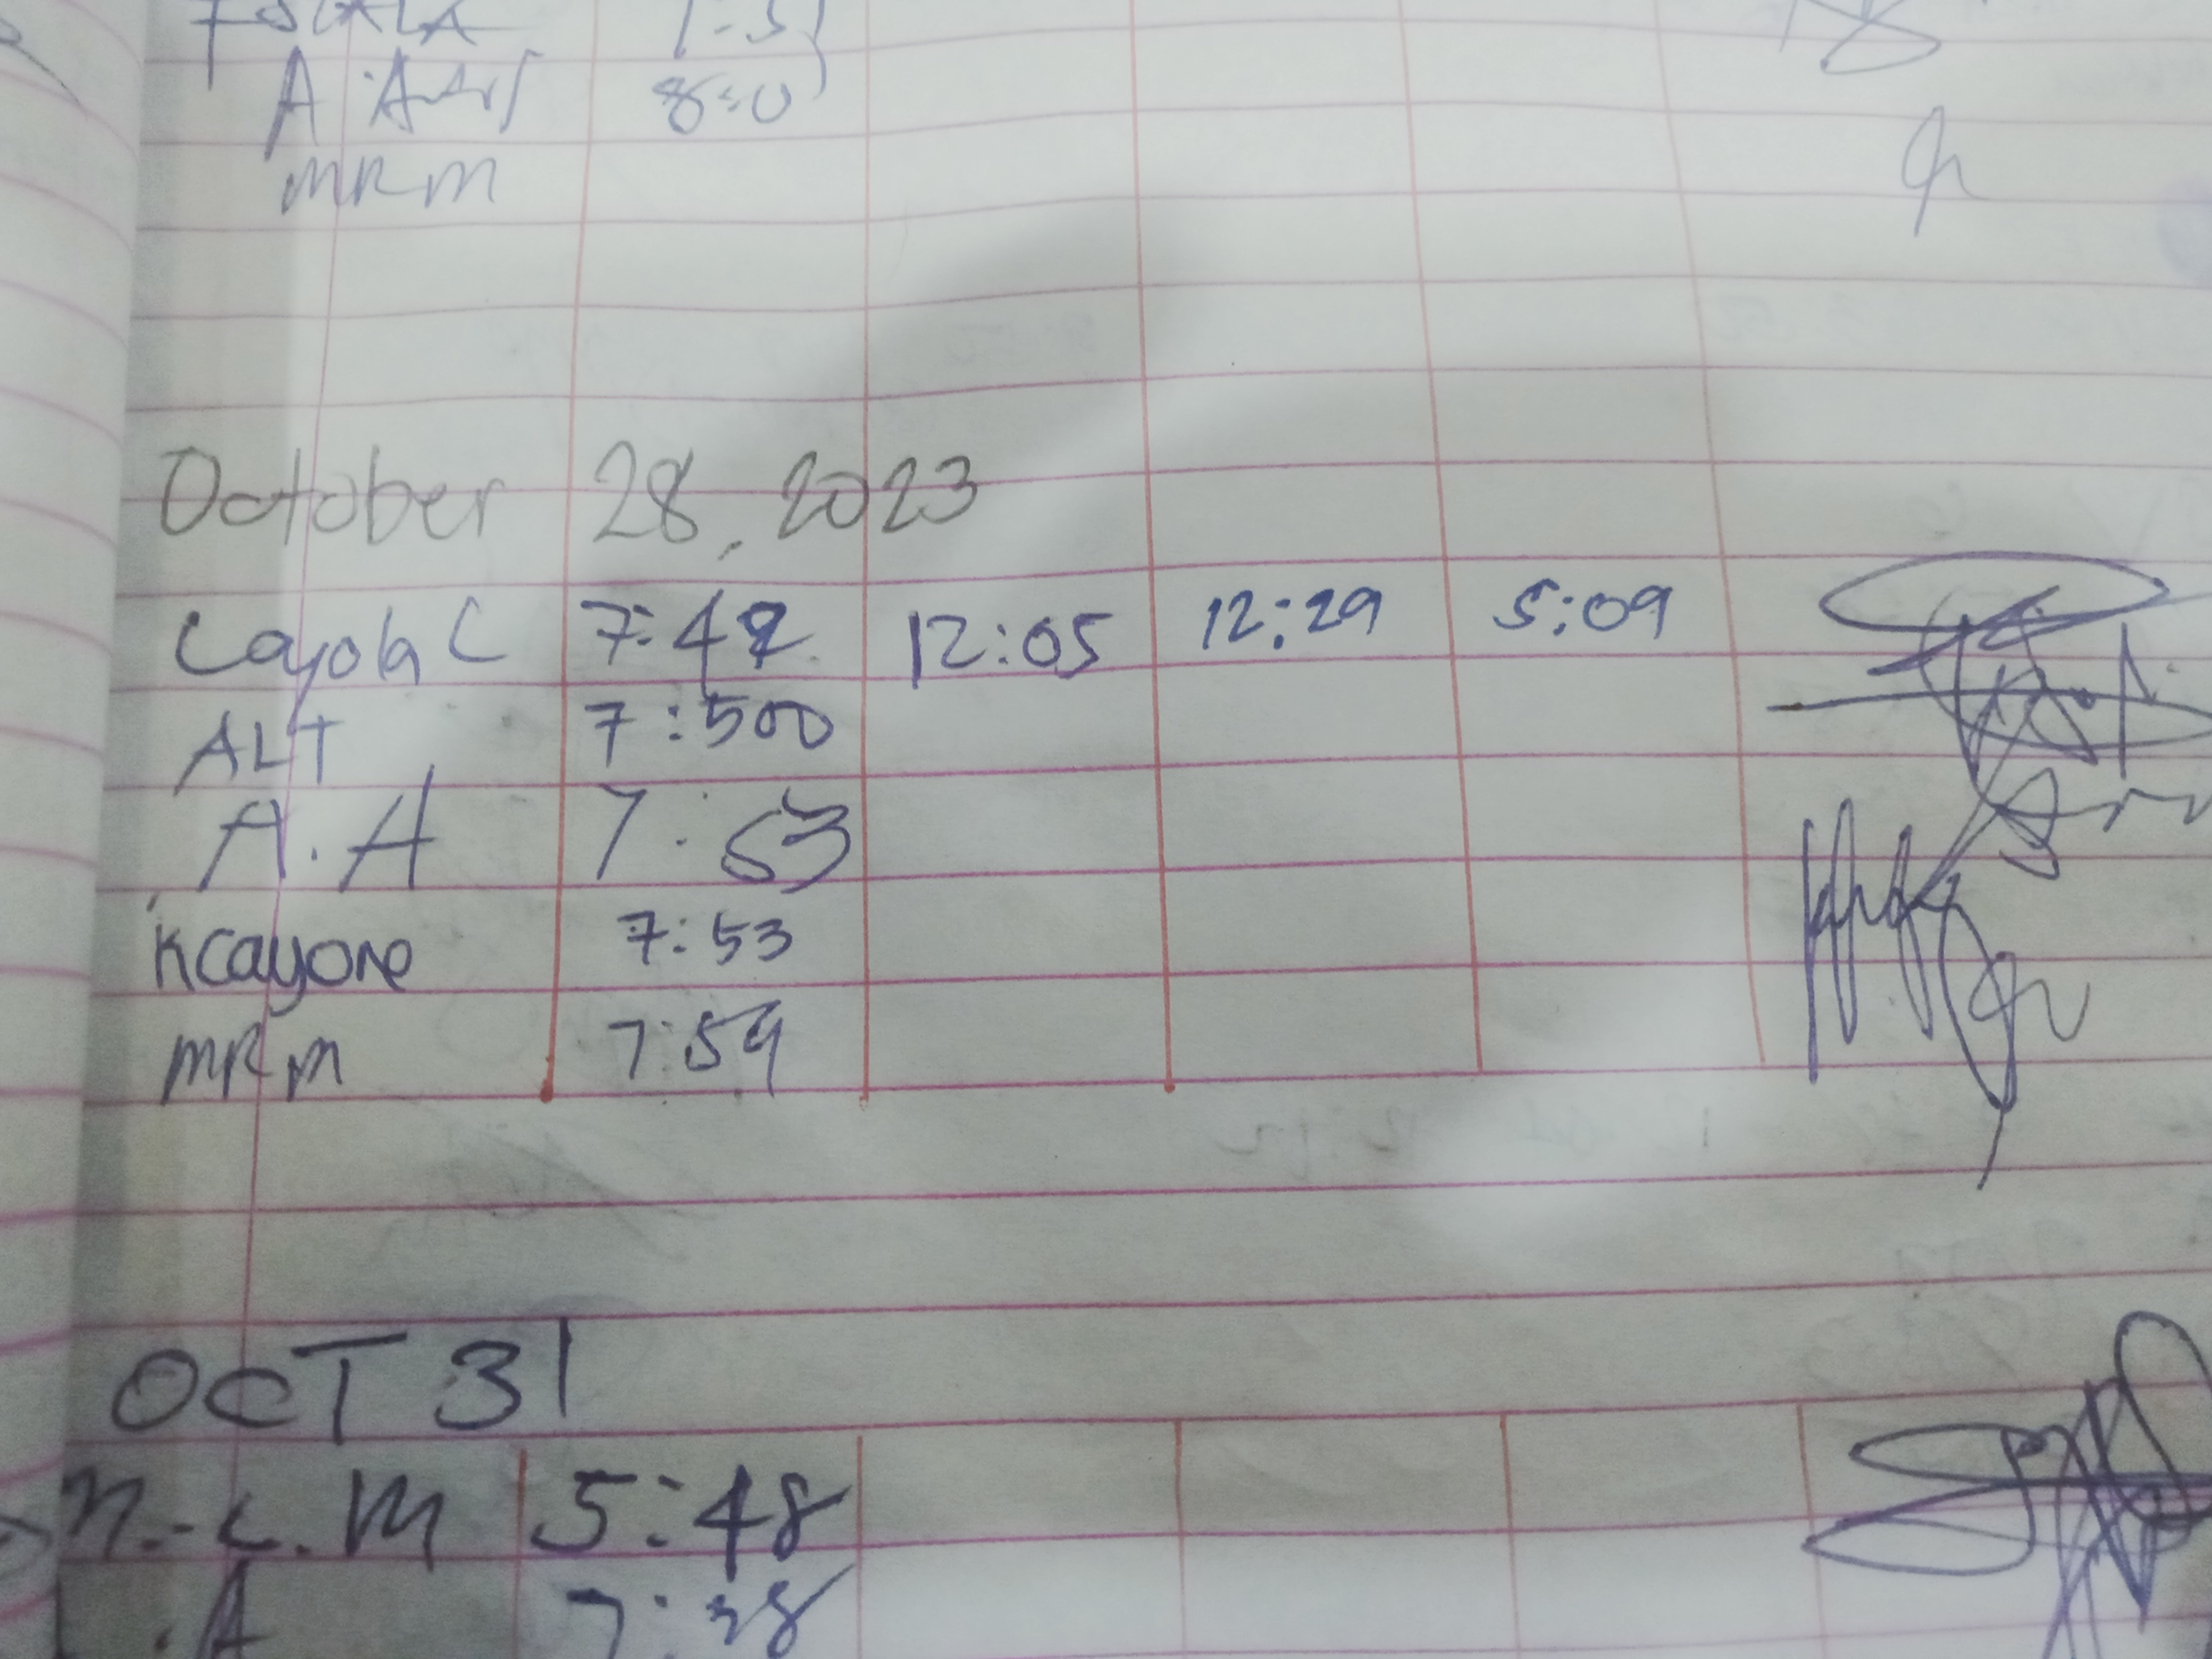 A
MRM
October 28, 2023
Layola C 7:42 12:05 12:29 5:09
ALT 7:500
A.A 7:53
Kcayone 7:53
MRM 7:59
OCT 31
n.-c.M 5:48
.A